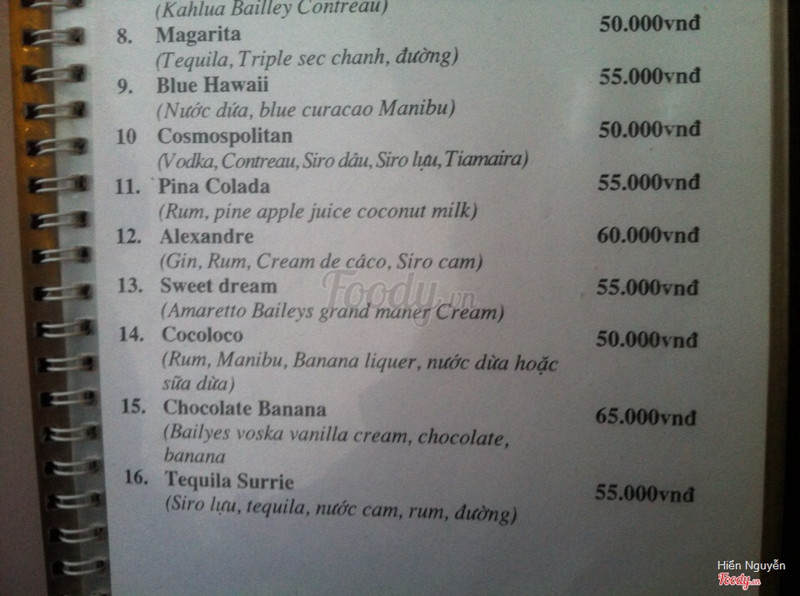 (Kahlua Bailley Contreau)
8. Magarita 50.000vnđ
(Tequila, Triple sec chanh, đường)
9. Blue Hawaii 55.000vnđ
(Nước dứa, blue curacao Manibu)
10 Cosmospolitan 50.000vnđ
(Vodka, Contreau, Siro dâu, Siro lựu, Tiamaira)
11. Pina Colada 55.000vnđ
(Rum, pine apple juice coconut milk)
12. Alexandre 60.000vnđ
(Gin, Rum, Cream de câco, Siro cam)
13. Sweet dream 55.000vnđ
(Amaretto Baileys grand maner Cream)
14. Cocoloco 50.000vnđ
(Rum, Manibu, Banana liquer, nước dừa hoặc
sữa dừa)
15. Chocolate Banana 65.000vnđ
(Bailyes voska vanilla cream, chocolate,
banana
16. Tequila Surrie 55.000vnđ
(Siro lựu, tequila, nước cam, rum, đường)
Foody.vn
Hiền Nguyễn
Foody.vn